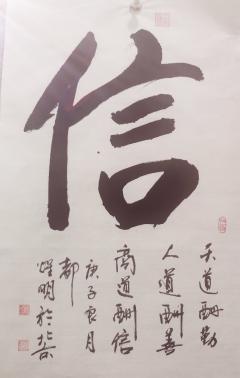 信
天道酬勤
人道酬善
商道酬信
庚子良月
都
耀明於北京